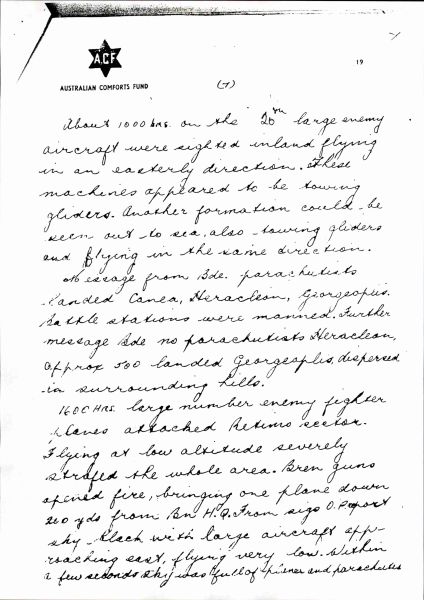 A.C.F.
AUSTRALIAN COMFORTS FUND
19
(7)
About 1000 hrs. on the 20th large enemy
aircraft were sighted inland flying
in an easterly direction. These
machines appeared to be towing
gliders. Another formation could be
seen out to sea, also towing gliders
and flying in the same direction.
Message from Bde. parachutists
landed Canea, Heracleon, Georgeoplis.
Battle stations were manned. Further
message Bde no parachutists Heracleon,
approx 500 landed Georgeoplis, dispersed
in surrounding hills.
1600 HRS. large number enemy fighter
planes attacked Retimo sector.
Flying at low altitude severely
strafed the whole area. Bren guns
opened fire, bringing one plane down
200 yds from Bn H.Q. From sigs O.P. report
sky black with large aircraft app-
roaching east, flying very low. Within
a few seconds sky was full of planes and parachutes